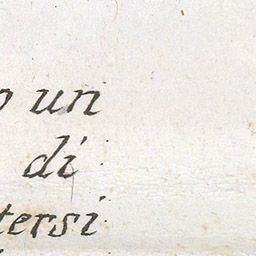 un
di
tersi